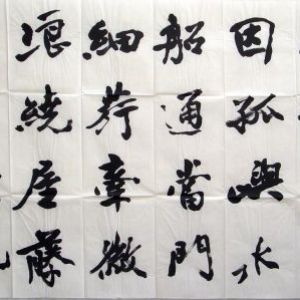 因孤嶼水
船通當門
細荇牽微
浪繞屋藤